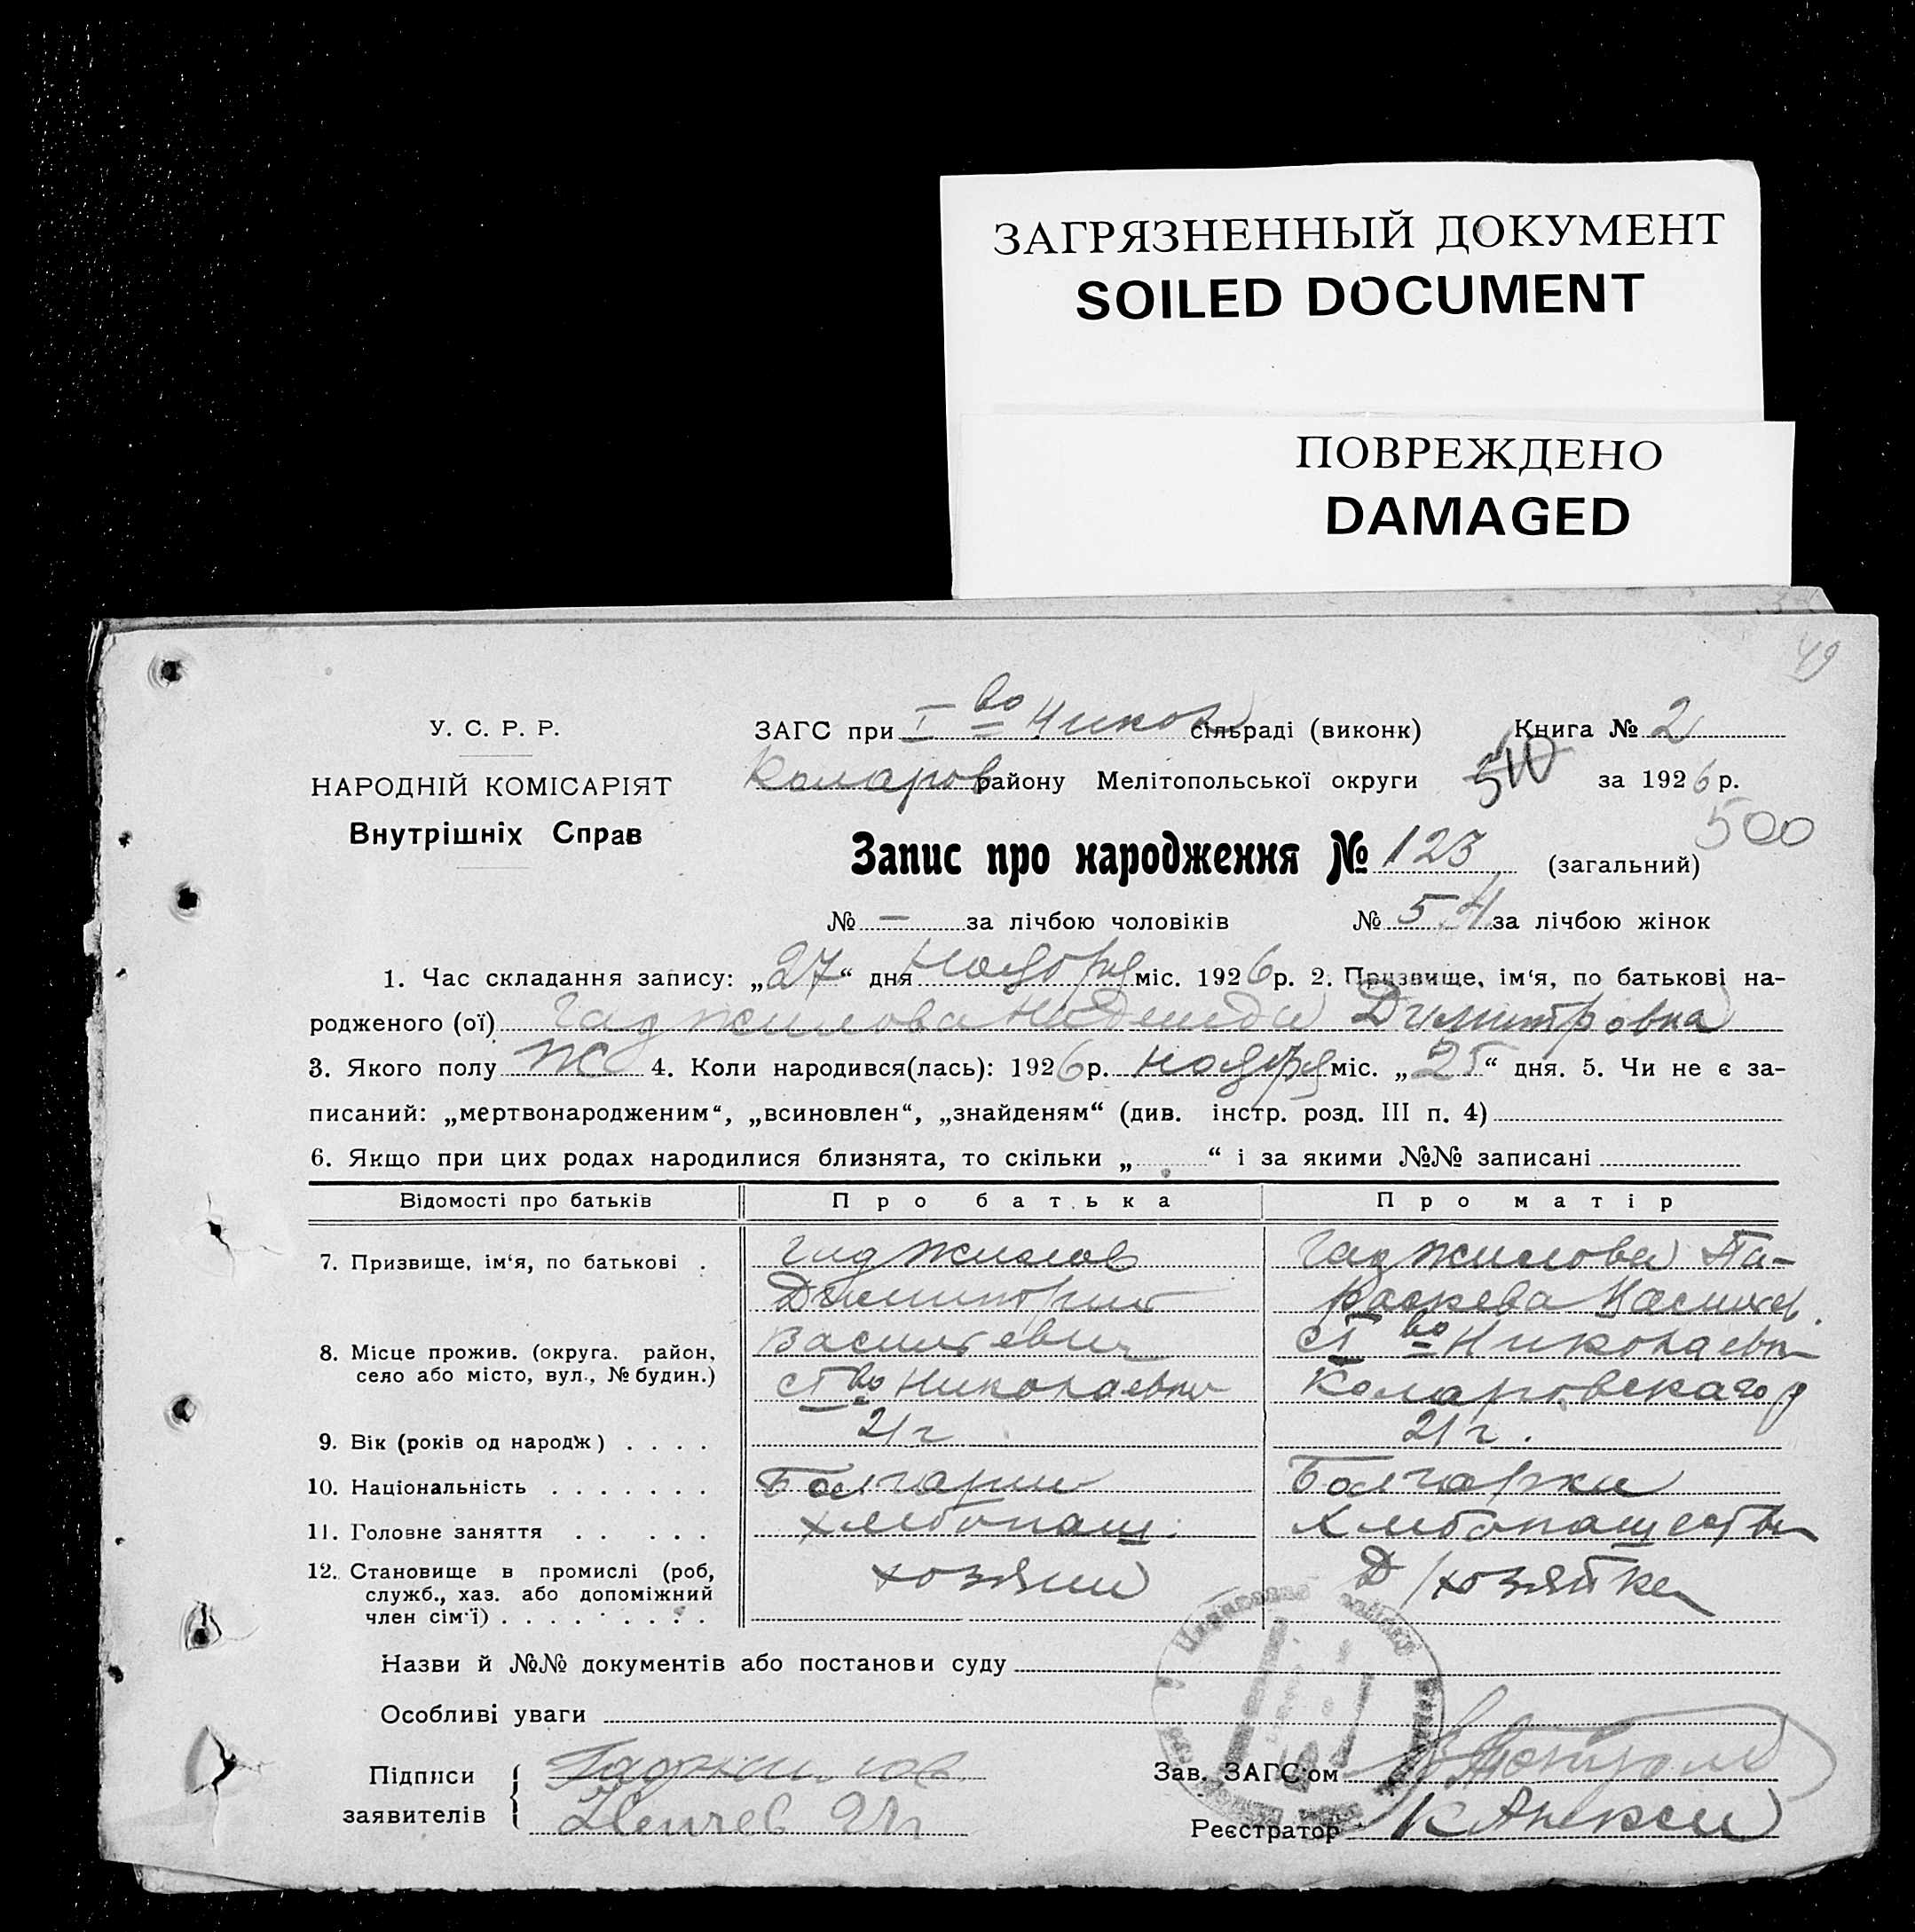 ЗАГРЯЗНЕННЫЙ ДОКУМЕНТ
SOILED DOCUMENT
ПОВРЕЖДЕНО
DAMAGED
49
У. С. Р. Р.
НАРОДНІЙ КОМІСАРІЯТ
Внутрішніх Справ
ЗАГС при I во Никол сільраді (виконк) Книга № 2
Коларов району Мелітопольської округи 510 за 1926 р.
500
Запис про народження № 123 (загальний)
№ — за лічбою чоловіків № 54 за лічбою жінок
1. Час складання запису: „27“ дня ноября міс. 1926 р. 2. Призвище, ім‘я, по батькові на-
родженого (ої) Гаджилова Надежда Димитровна
3. Якого полу ж 4. Коли народився(лась): 1926 р. ноября міс. „25“ дня. 5. Чи не є за-
писаний: „мертвонародженим“, „всиновлен“, „знайденям“ (див. інстр. розд. III п. 4)
6. Якщо при цих родах народилися близнята, то скільки „ “ і за якими №№ записані
Відомості про батьків Про батька Про матір
7. Призвище, ім‘я, по батькові . Гаджилов Гаджилова Па-
Димитрий раскева
8. Місце прожив. (округа. район, село або місто, вул., № будин.) Васильевич с I во Николаевка
с I во Николаевка Коларовскаго р
9. Вік (років од народж) . . . . 21 г 21 г.
10. Національність . . . . . . . Болгарин Болгарка
11. Головне заняття . . . . . хлебопаш. Хлебопашество
12. Становище в промислі (роб, хозяин Д/хозяйка
служб., хаз. або допоміжний
член сім‘ї) . . . . . . . . .
Назви й №№ документів або постанови суду
Особливі уваги
Підписи заявителів Гаджилов
Зав. ЗАГС‘ом
Реєстратор К Алекси